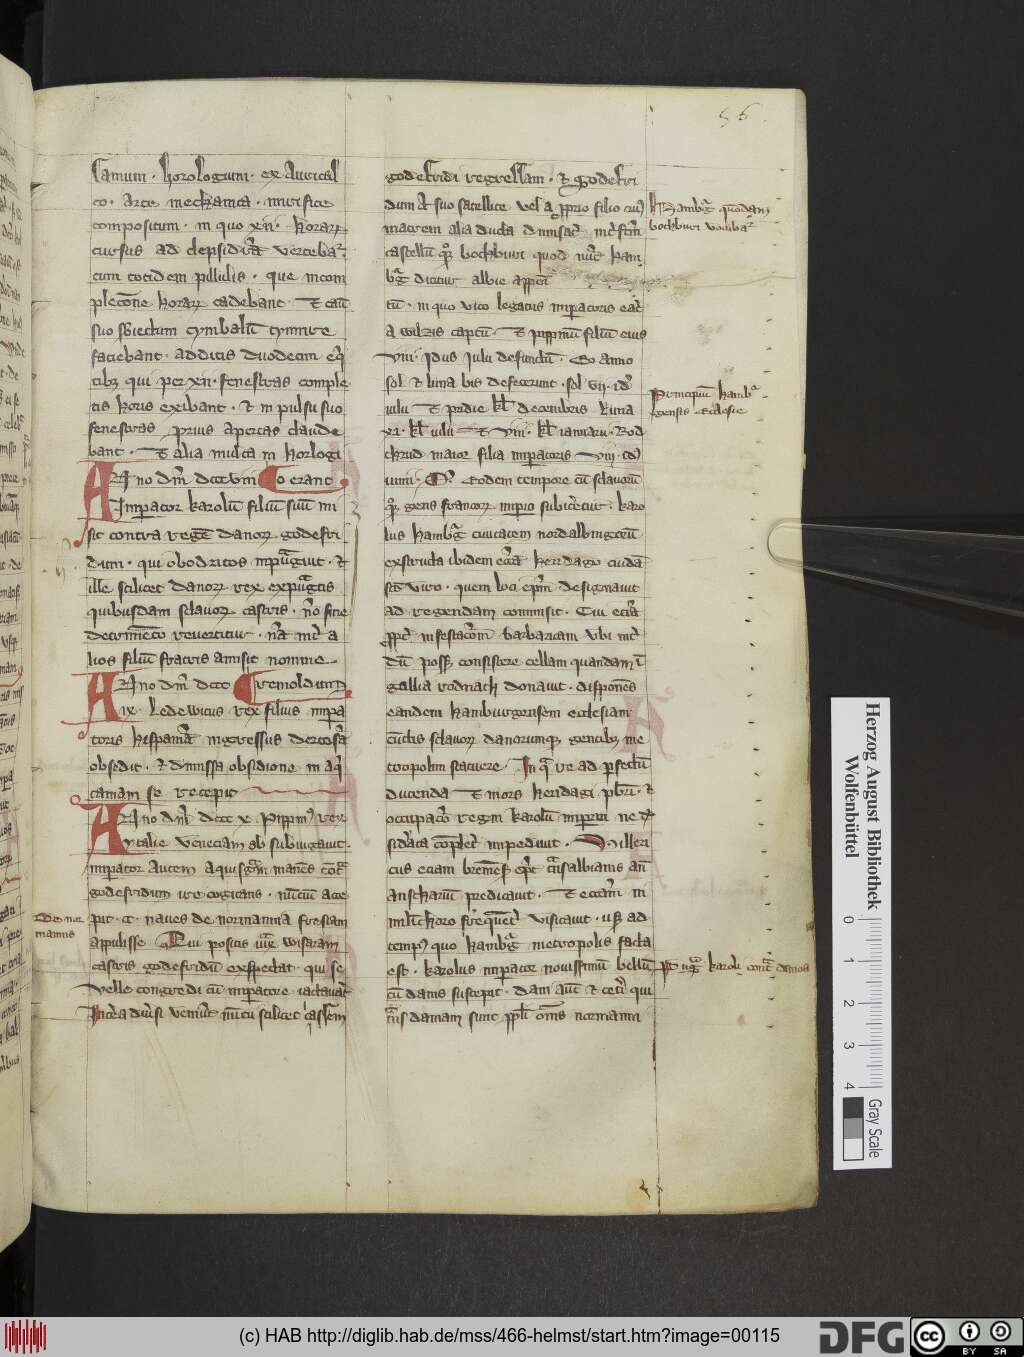 56
lamum · horologium · ex aurical
co · arte mechanica · mirifice
compositum · in quo xii · horarz
cursus ad clepsidrā vertebat᷒
cum totidem pillulis · que in com
plecōne horarz cadebant · Et casu
suo sbiectum cymbalū tynnire
faciebant · additis duodecim eq̄
tibz qui per xii · fenestras comple
tis horis exibant · et in pulsu suo
fenestras prius apertas claude
bant · Et alia multa in horlogi
Anno dn̄i dccc viii Co erant
Imperator karolū filiū suū mi
sit contra regē danorz godefri
dum · qui obodritos inpugnauit · et
ille scilicet danorz rex expugnatis
quibusdam sclauorz castris · nō sine
detrimēto reuertitur · nā int̄ a
lios filiū fratris amisit nomine
Anno dn̄i dccc Reinoldum
ix · Ledewicus rex filius impa
toris hispaniā ingressus dertosā
obsedit · et dimissa obsidione in aq̄
taniam se recepit
Anno dn̄i dccc x · Pippinꝰ rex
ytalie veneciam sb subiugauit ·
imperator autem aquisgͣni manēs cōtͣ
godefridum ire cogitans · nūciū acce
pit · cc · naues de normannia fresiam
appulisse Qui positis iux̄ wisaram
castris godefridū exspectat · qui se
velle congredi cū imperatore iactauit
Intēa diu̅si veniūt nuncii scilicet classem
De nor
mannis
godefridi regressam · et Godefri
dum a suo satellite vel a proprio filio cuiꝰ
matrem alia ducta dimiserat int̄fcm̄
castellū qz bochburi quod nūc ham
bg̅ dicitur albie apposi
tū · in quo vico legatus imperatoris erat
a wilzis captū · Et pippinū filiū eius
viii · idus iulii defunctū · Eo anno
sol et luna bis defecerunt · sol vii · idꝰ
iulii Et pridie kl̄ decembris Luna
xi · kl̄ iulii Et viii · kl̄ ianuarii · Rod
thrud maior filia imperatoris viii · idꝰ
iunii · Eodem tempore cū sclauorū
qz gens francorz imperio subiceretur · karo
lus hambg̅ ciuitatem nordalbingorū
exstructa ibidem ecc̄a heridago cuidā
scō viro · quem loci epm̄ designauit
ad regendam commisit · Cui eciā
propt̄ infestacōem barbaricam vbi int̄
dū posset consistere cellam quandam ī
gallia rodnach donauit · disponēs
eandem hamburgensem ecclesiam
cunctis sclauorz danorumqz gentibz me
tropolim statuere · In qͣ re ad perfectū
ducenda Et mors heridagi pbri · et
occupacō regni karolū imperatorem ne de
siderata cōpleret impediuit · Willeri
cus etiam bremēsis epc̄ tͣnsalbianis an̄
anscharium predicauit · Et ecciam in
milinthorp frequent̄ visitauit · usqz ad
tempꝰ quo hambg̅ metropolis facta
est · karolus imperator nouissimū bellū
cū danis suscepit · dani autē et cetī qui
tͣns daniam sunt ppl̄i om̄s normanni
Hambg̅ quondam
bochburi vocabat᷒
Principiū hamb
gensis ecclesie
pugͣ karoli contͣ danos
Herzog August Bibliothek
Wolfenbüttel
0 1 2 3 4
Gray Scale
(c) HAB http://diglib.hab.de/mss/466-helmst/start.htm?image=00115
DFG
cc BY SA